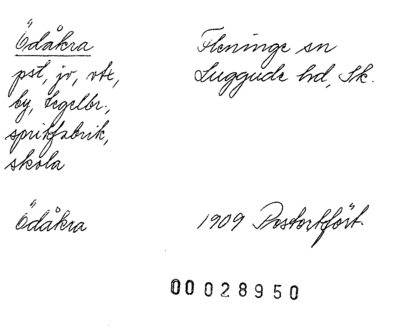 Ödåkra
pst, jv, vte,
by, tegelbr.,
spritfabrik,
skola
Fleninge sn
Luggude hd, Sk.
Ödåkra
1909 Postortfört.
00028950